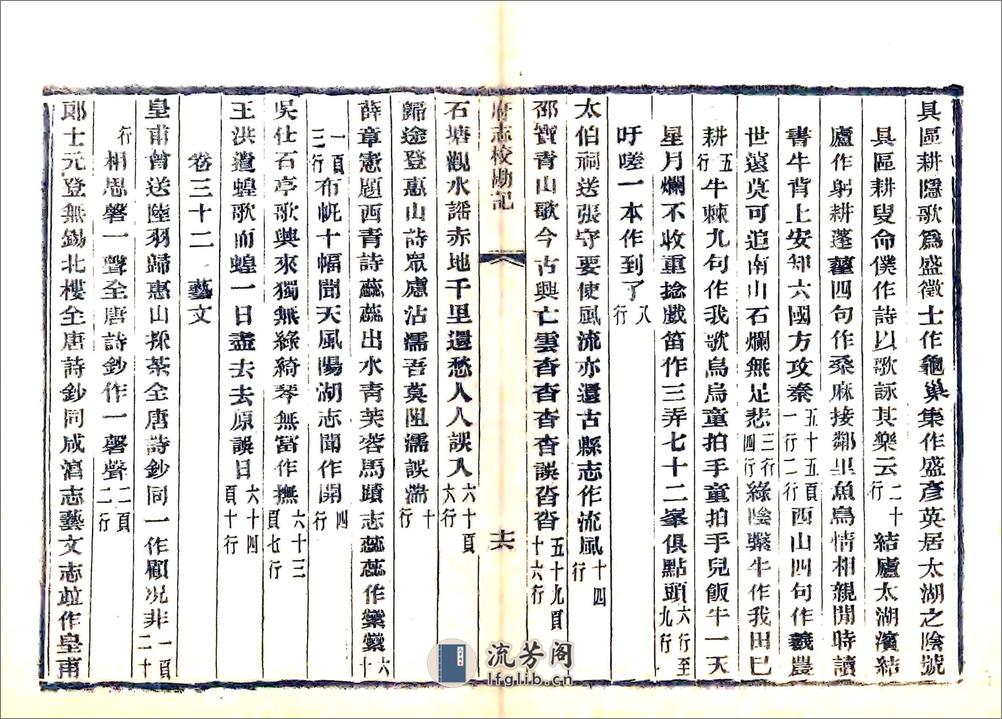 具區耕隱歌爲盛徵士作龜巢集作盛彥英居太湖之陰號
具區耕叟命僕作詩以歌詠其樂云二十行結廬太湖濱結
廬作躬耕蓬藋四句作桑麻接鄰里魚鳥情相親閒時讀
書牛背上安知六國方攻秦五十五頁一行二行西山四句作羲農
世遠莫可追南山石爛無足悲三行四行綠陰繫牛作我田已
耕五行牛棘九句作我歌烏烏童拍手童拍手兒飯牛一天
星月爛不收重捻戲笛作三弄七十二峯俱點頭六行至九行
吁嗟一本作到了八行
太伯祠送張守要使風流亦還古縣志作流風十四行
邵寶青山歌今古興亡雲杳杳杳杳誤沓沓五十九頁十六行
府志校勘記
十六
石塘觀水謠赤地千里還愁人人誤入六十頁六行
歸途登惠山詩眾慮沾濡吾莫阻濡誤濡十行
薛章憲題西青詩蕊蕊出水青芙蓉馬蹟志蕊蕊作欒欒六十
一頁三行布帆十幅聞天風陽湖志聞作開四行
吳仕石亭歌興來獨無絲綺琴無當作撫六十三頁七行
王洪遣蝗歌而蝗一日盡去去原誤日六十四頁十行
卷三十二 藝文
皇甫曾送陸羽歸惠山採茶全唐詩鈔同一作顧况非一頁二十
行相思磬一聲全唐詩鈔作一磬聲二頁二行
郎士元登無錫北樓全唐詩鈔同咸淳志藝文志竝作皇甫
流芳阁
lfglib.cn